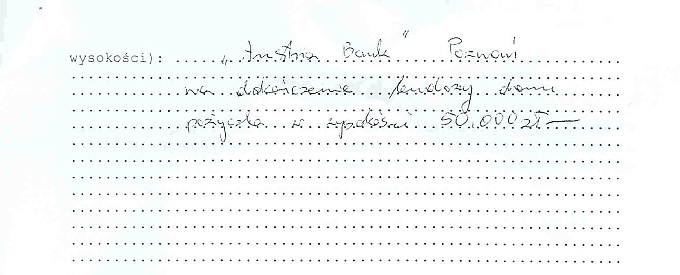 wysokości): „Austria Bank” Poznań
na dokończenie budowy domu
pożyczka w wysokości 50.000 zł —